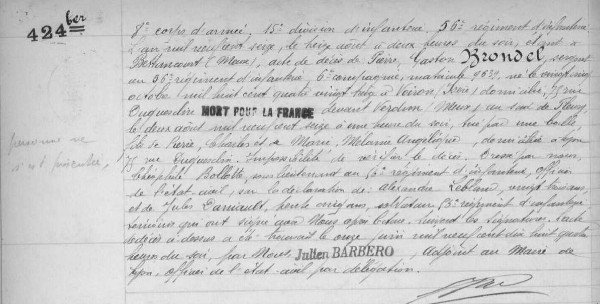 424 ter
8e corps d'armée, 15e division d'infanterie, 56e régiment d'infanterie
L'an mil neuf cent seize, le treize août à deux heures du soir, étant à
Bettancourt (Meuse), acte de décès de Pierre, Gaston Brondel, sergent
au 56e régiment d'infanterie, 6e compagnie, matricule né le vingt cinq
octobre mil huit cent quatre vingt seize à Voiron, (Isère) domicilié, 75 rue
Duguesclin MORT POUR LA FRANCE devant Verdun (Meuse) au sud de Fleury
le deux août mil neuf cent seize à une heure du soir, tué par une balle,
fils de Pierre, Charles et de Marie, Mélanie Angélique, domiciliés à Lyon
75 rue Duguesclin. Impossibilité de vérifier le décès. Dressé par nous,
Théophile sous lieutenant au 56e régiment d'infanterie, officier
de l'état civil, sur la déclaration de Alexandre Leblanc, vingt trois ans,
et de Jules trente cinq ans, soldats au 56e régiment d'infanterie
témoins qui ont signé avec Nous après lecture. Suivent les signatures. L'acte
de décès ci dessus a été transcrit le onze juin mil neuf cent dix huit quatre
heures du soir, par Nous Julien BARBERO, Adjoint au Maire de
Lyon, officier de l'état civil par délégation.
personne ne
s'est présenter